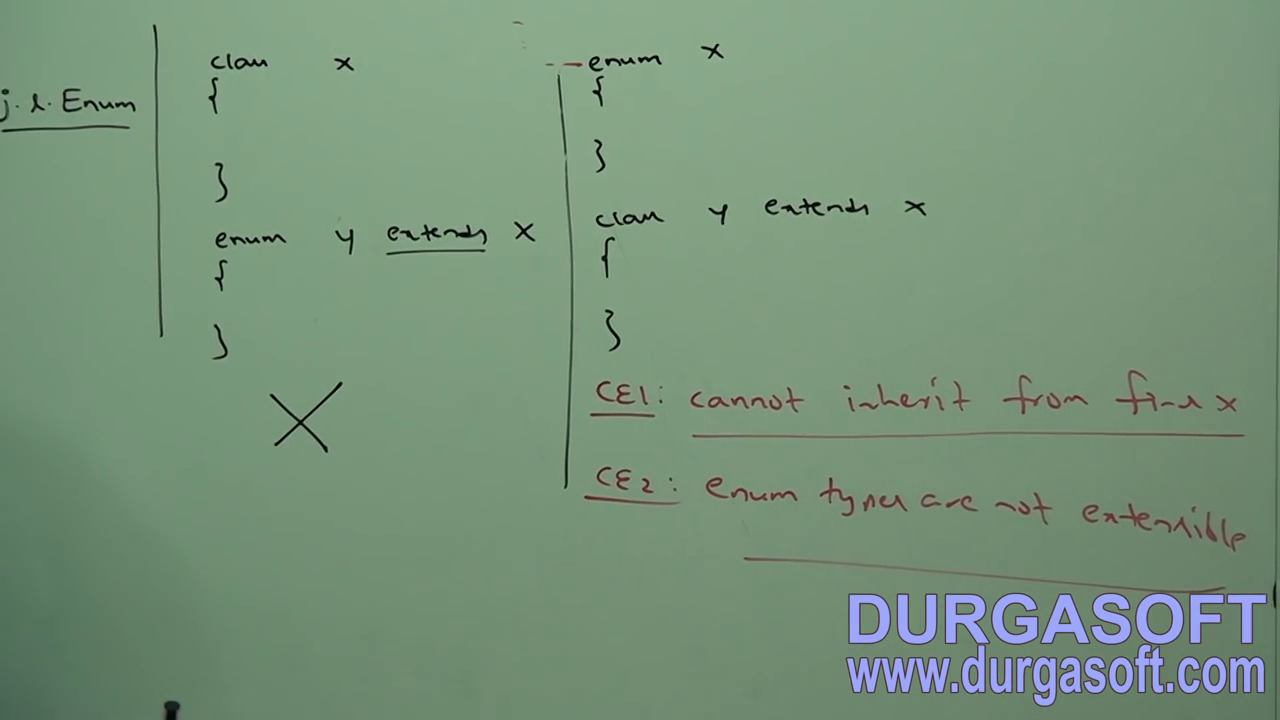 j.l.Enum
class x
{
}
enum y extends x
{
}
enum x
{
}
class y extends x
{
}
CE1: cannot inherit from final x
CE2: enum types are not extensible
DURGASOFT
www.durgasoft.com